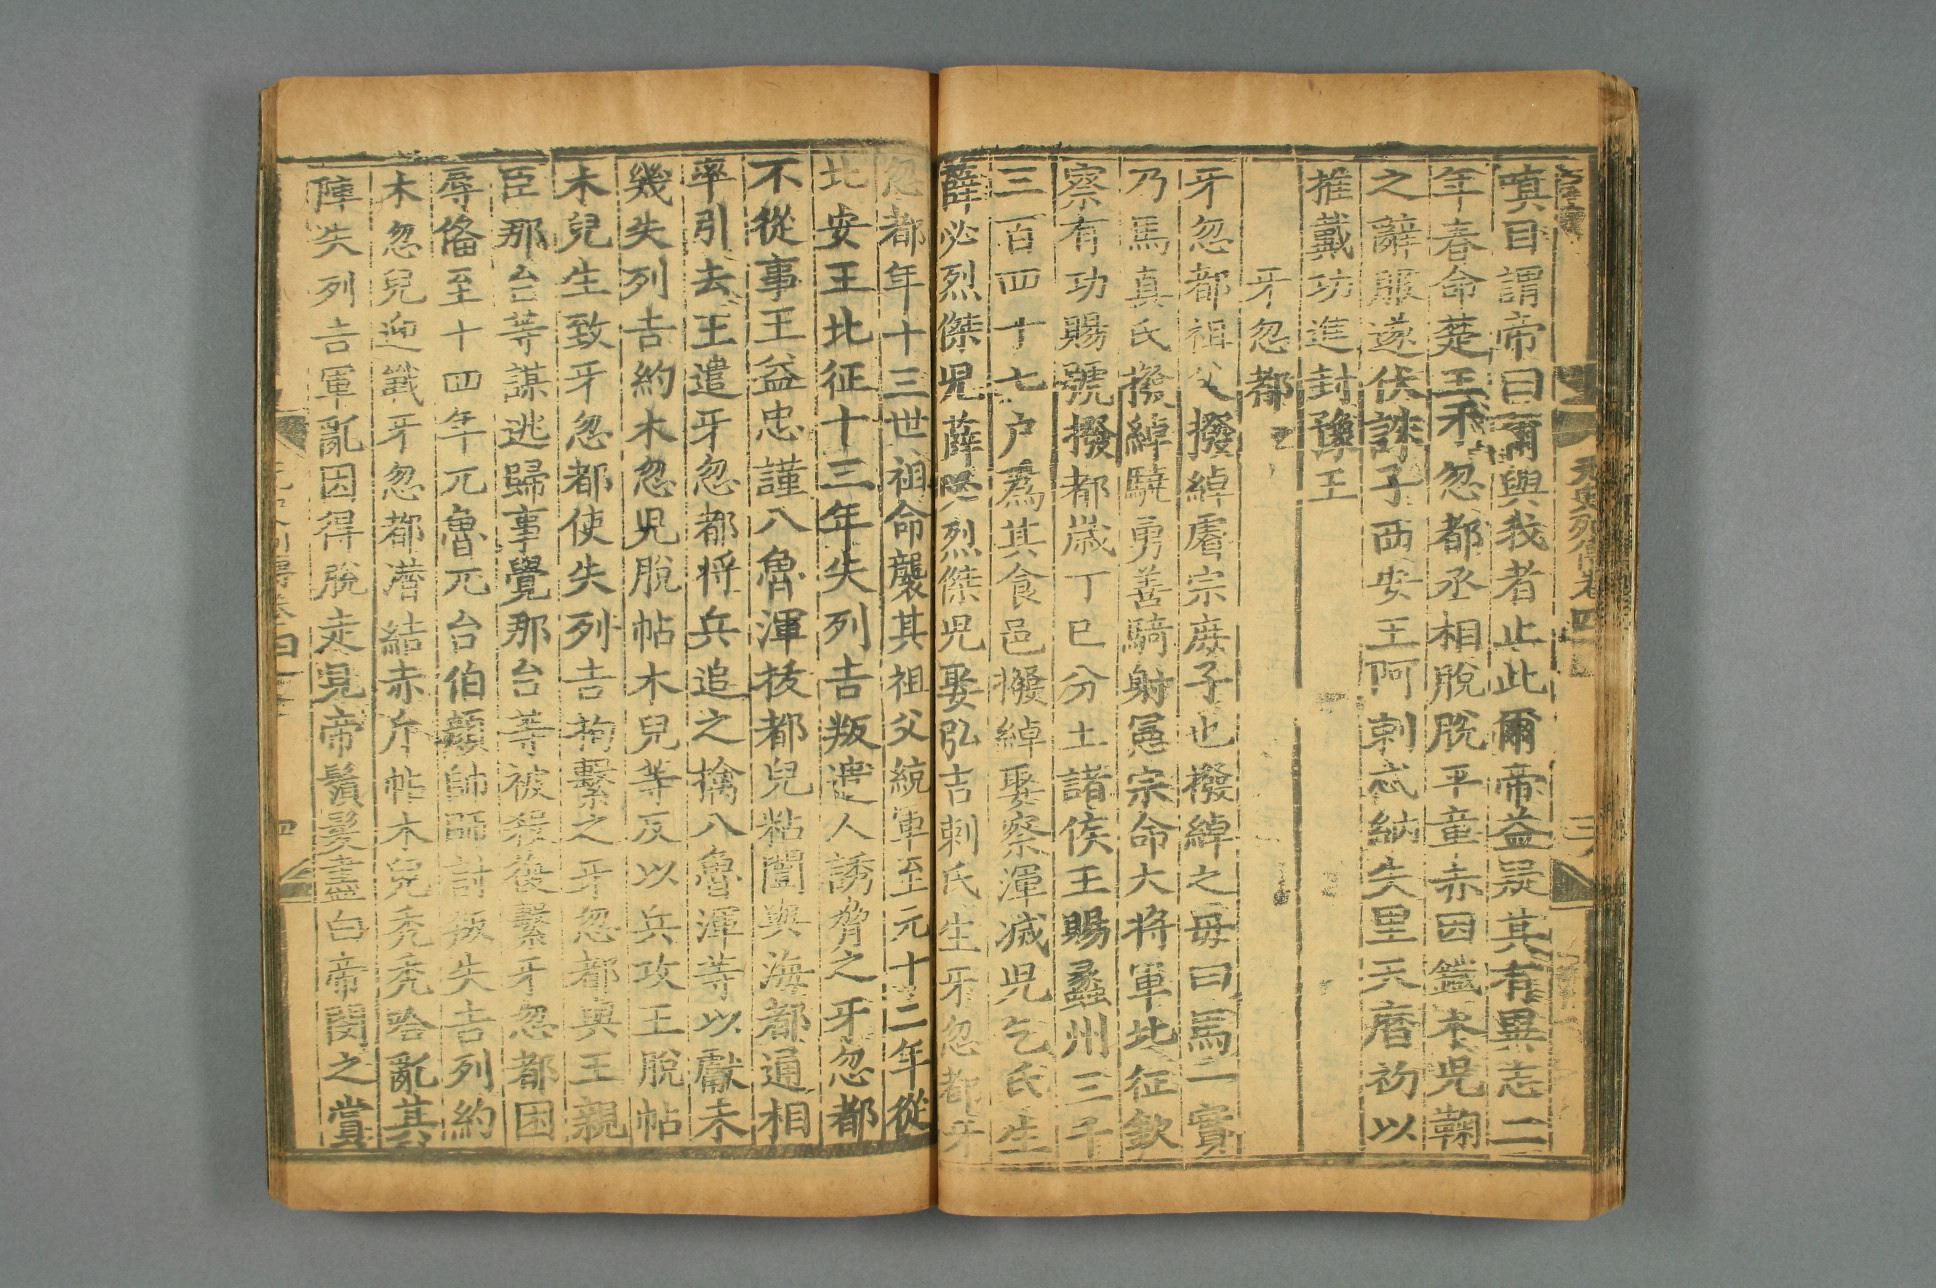 元史列傳卷四
三
嗔目謂帝曰爾與我者止此爾帝益疑其有異志二
年春命楚王禾忽都丞相脫脫平章赤因鐵木兒鞫
之辭服遂伏誅子西安王阿剌忒納失里天曆初以
推戴功進封豫王
牙忽都
牙忽都祖父撥綽睿宗庶子也撥綽之母曰馬一實
乃馬真氏撥綽驍勇善騎射憲宗命大將軍北征欽
察有功賜號撥都歲丁巳分土諸侯王賜蠡州三千
三百四十七户爲其食邑撥綽娶察渾滅兒乞氏生
薛必烈傑兒薛必烈傑兒娶弘吉剌氏生牙忽都牙
忽都年十三世祖命襲其祖父統軍至元十二年從
北安王北征十三年失列吉叛遣人誘脅之牙忽都
不從事王益忠謹八魯渾拔都兒粘闓與海都通相
率引去王遣牙忽都將兵追之擒八魯渾等以獻未
幾失列吉約木忽兒脫帖木兒等反以兵攻王脫帖
木兒生致牙忽都使失列吉拘繫之牙忽都與王親
臣那台等謀逃歸事覺那台等被殺復繫牙忽都困
辱俻至十四年兀魯兀台伯顏帥師討叛失吉列約
木忽兒迎戰牙忽都潜結赤斤帖木兒禿禿哈亂其
陣失列吉軍亂因得脫走見帝鬚髮盡白帝閔之賞
四